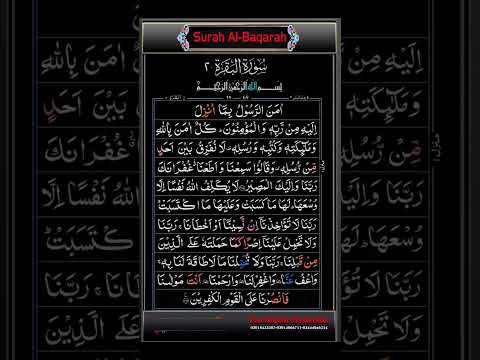 Surah Al-Baqarah
سُوْرَةُ الْبَقَرَةِ ٢
بِسْمِ اللّٰهِ الرَّحْمٰنِ الرَّحِيْمِ
اٰمَنَ الرَّسُوْلُ بِمَاۤ اُنْزِلَ
اِلَيْهِ مِنْ رَّبِّهٖ وَالْمُؤْمِنُوْنَ ؕ كُلٌّ اٰمَنَ بِاللّٰهِ
وَمَلٰٓئِكَتِهٖ وَكُتُبِهٖ وَرُسُلِهٖ ۟ لَا نُفَرِّقُ بَيْنَ اَحَدٍ
مِّنْ رُّسُلِهٖ ۟ وَقَالُوْا سَمِعْنَا وَاَطَعْنَا ۗ غُفْرَانَكَ
رَبَّنَا وَاِلَيْكَ الْمَصِيْرُ لَا يُكَلِّفُ اللّٰهُ نَفْسًا اِلَّا
وُسْعَهَا ؕ لَهَا مَا كَسَبَتْ وَعَلَيْهَا مَا اكْتَسَبَتْ ؕ
رَبَّنَا لَا تُؤَاخِذْنَاۤ اِنْ نَّسِيْنَاۤ اَوْ اَخْطَاْنَا ۚ رَبَّنَا
وَلَا تَحْمِلْ عَلَيْنَاۤ اِصْرًا كَمَا حَمَلْتَهٗ عَلَى الَّذِيْنَ
مِنْ قَبْلِنَا ۚ رَبَّنَا وَلَا تُحَمِّلْنَا مَا لَا طَاقَةَ لَنَا بِهٖ ۚ
وَاعْفُ عَنَّا ۥ وَاغْفِرْ لَنَا ۥ وَارْحَمْنَا ۥ اَنْتَ مَوْلٰىنَا
فَانْصُرْنَا عَلَى الْقَوْمِ الْكٰفِرِيْنَ